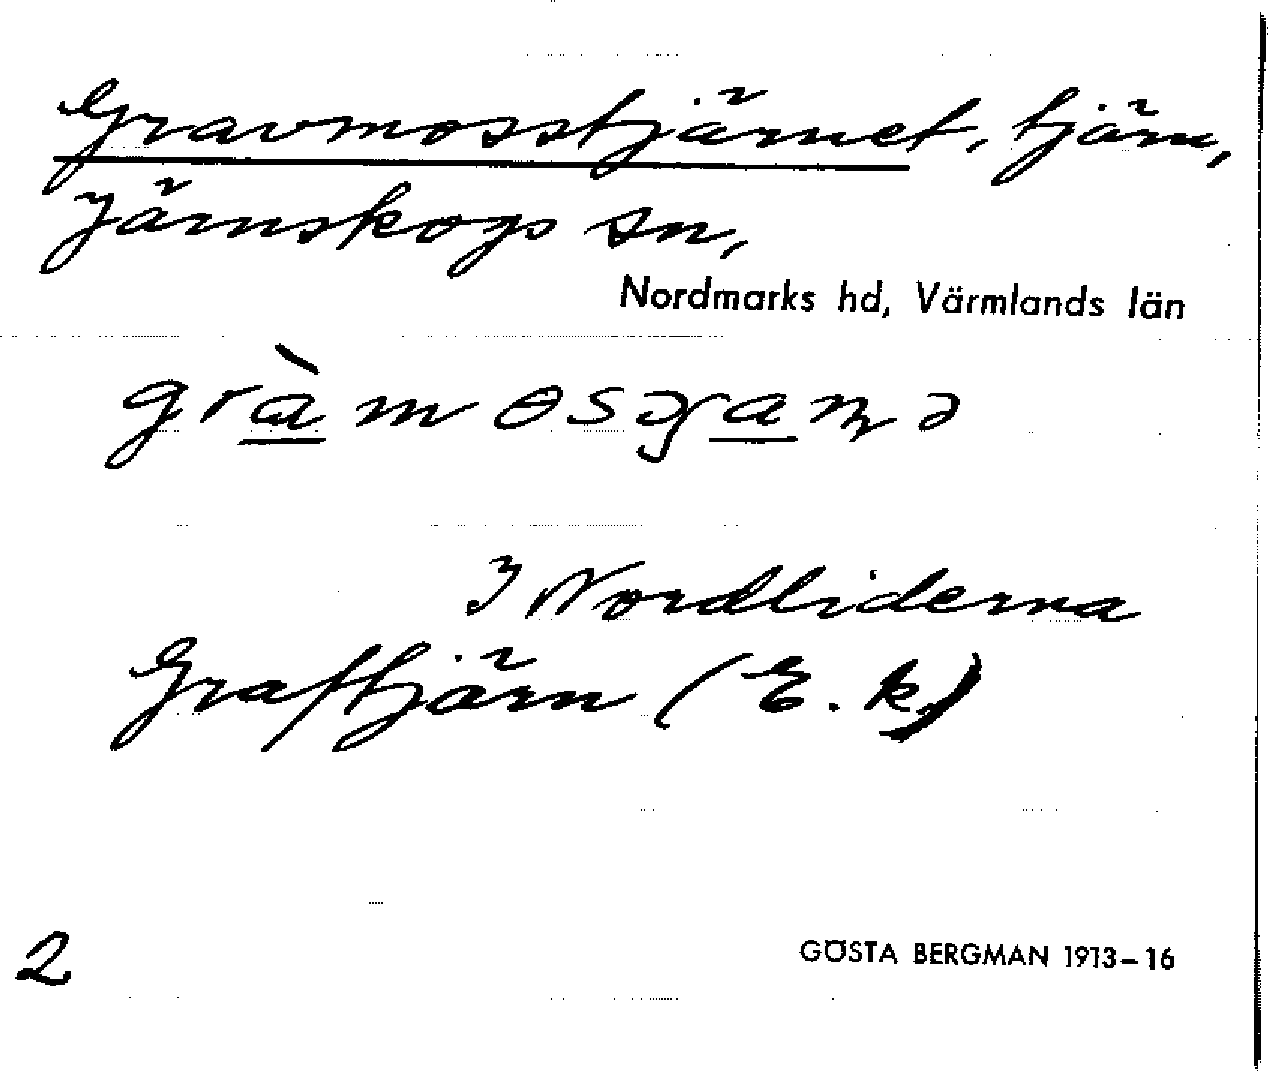 Gravmosstjärnet, tjärn,
Järnskogs sn,
Nordmarks hd, Värmlands län
I Nordliderna
Graftjärn (E. k.)
2
GÖSTA BERGMAN 1913–16